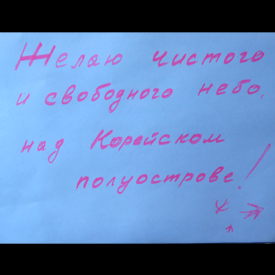 Желаю чистого
и свободного небо,
над Корейском
полуострове!